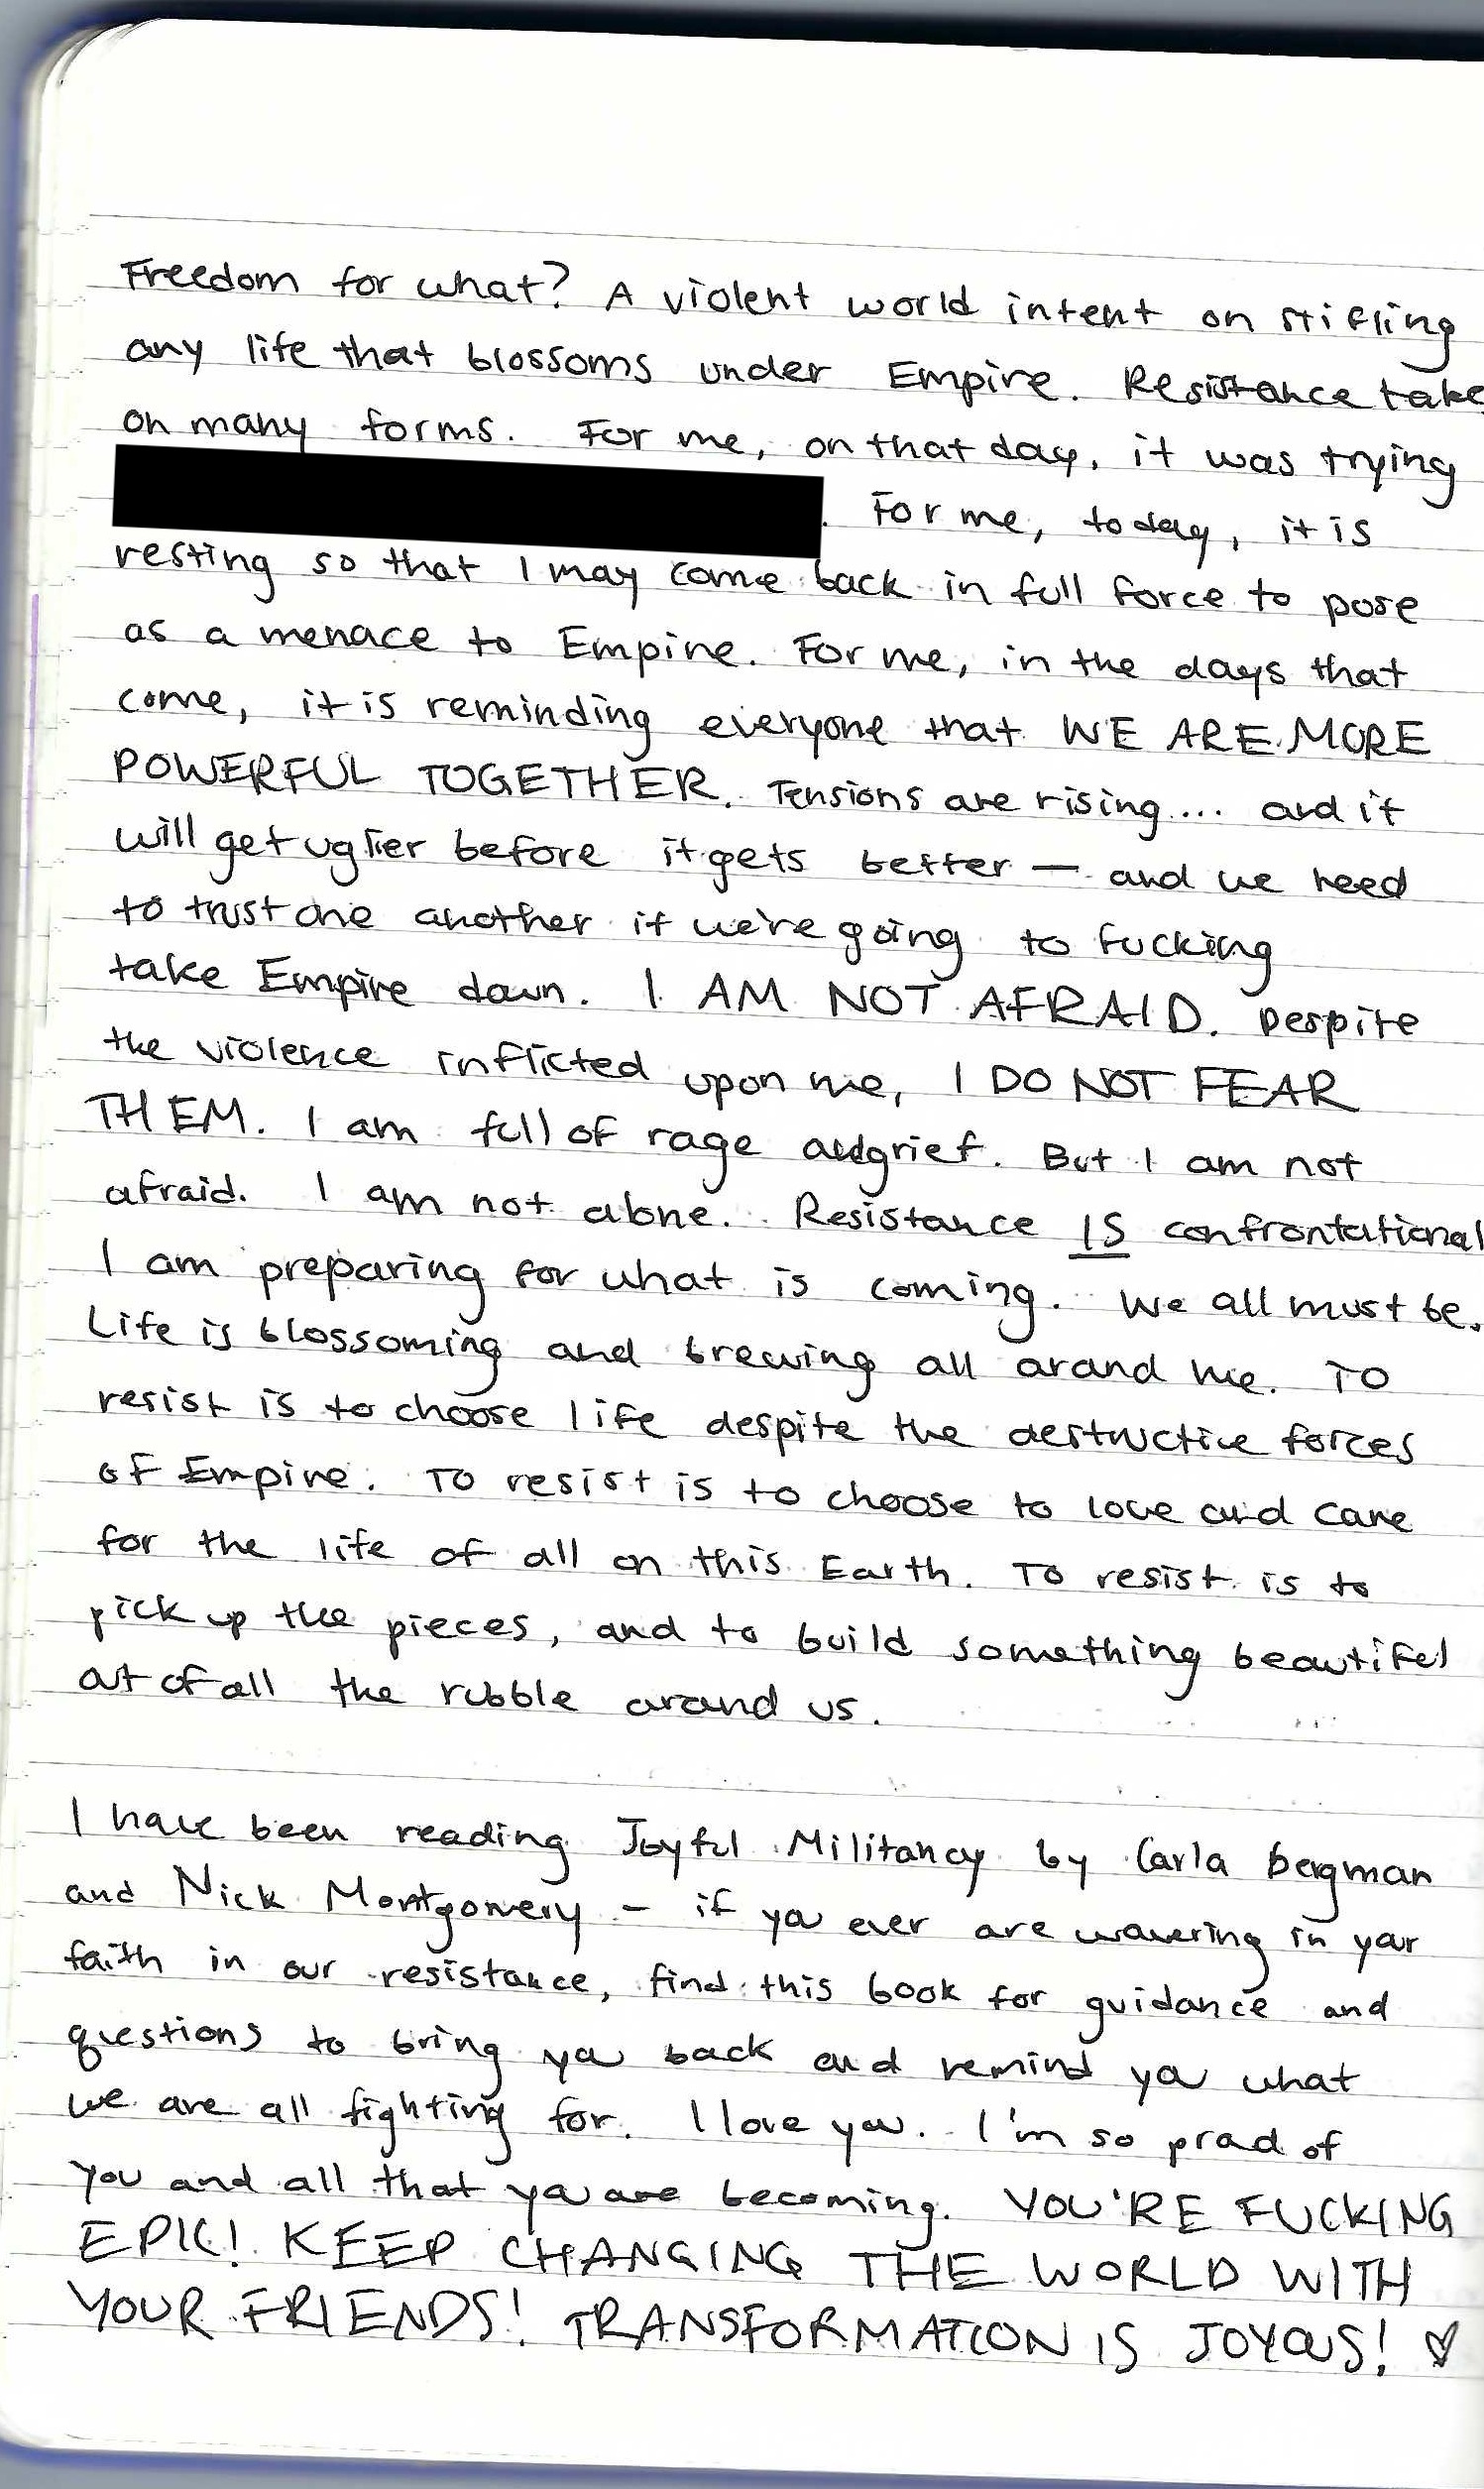 Freedom for what? A violent world intent on stifling
any life that blossoms under Empire. Resistance take
on many forms. For me, on that day, it was trying
. For me, today, it is
resting so that I may come back in full force to pose
as a menace to Empire. For me, in the days that
come, it is reminding everyone that WE ARE MORE
POWERFUL TOGETHER. Tensions are rising... and it
will get uglier before it gets better — and we need
to trust one another if we're going to fucking
take Empire down. I AM NOT AFRAID. Despite
the violence inflicted upon me, I DO NOT FEAR
THEM. I am full of rage and grief. But I am not
afraid. I am not alone. Resistance IS confrontational
I am preparing for what is coming. We all must be.
Life is blossoming and brewing all around me. To
resist is to choose life despite the destructive forces
of Empire. To resist is to choose to love and care
for the life of all on this Earth. To resist is to
pick up the pieces, and to build something beautiful
out of all the rubble around us.
I have been reading Joyful Militancy by Carla bergman
and Nick Montgomery - if you ever are wavering in your
faith in our resistance, find this book for guidance and
questions to bring you back and remind you what
we are all fighting for. I love you. I'm so proud of
you and all that you are becoming. YOU'RE FUCKING
EPIC! KEEP CHANGING THE WORLD WITH
YOUR FRIENDS! TRANSFORMATION IS JOYOUS! ♡